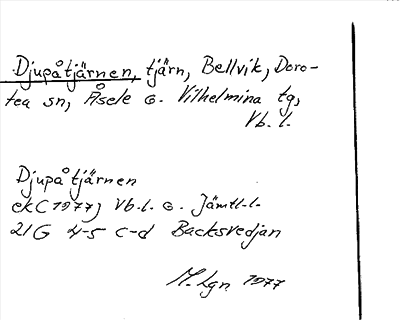 Djupåtjärnen, tjärn, Bellvik, Doro-
tea sn, Åsele o. Vilhelmina tg,
Vb. l.
Djupåtjärnen
ekC 1977, Vb. l. o. Jämtl. l.
21G 4-5 c-d Backsvedjan
M. Lgn 1977